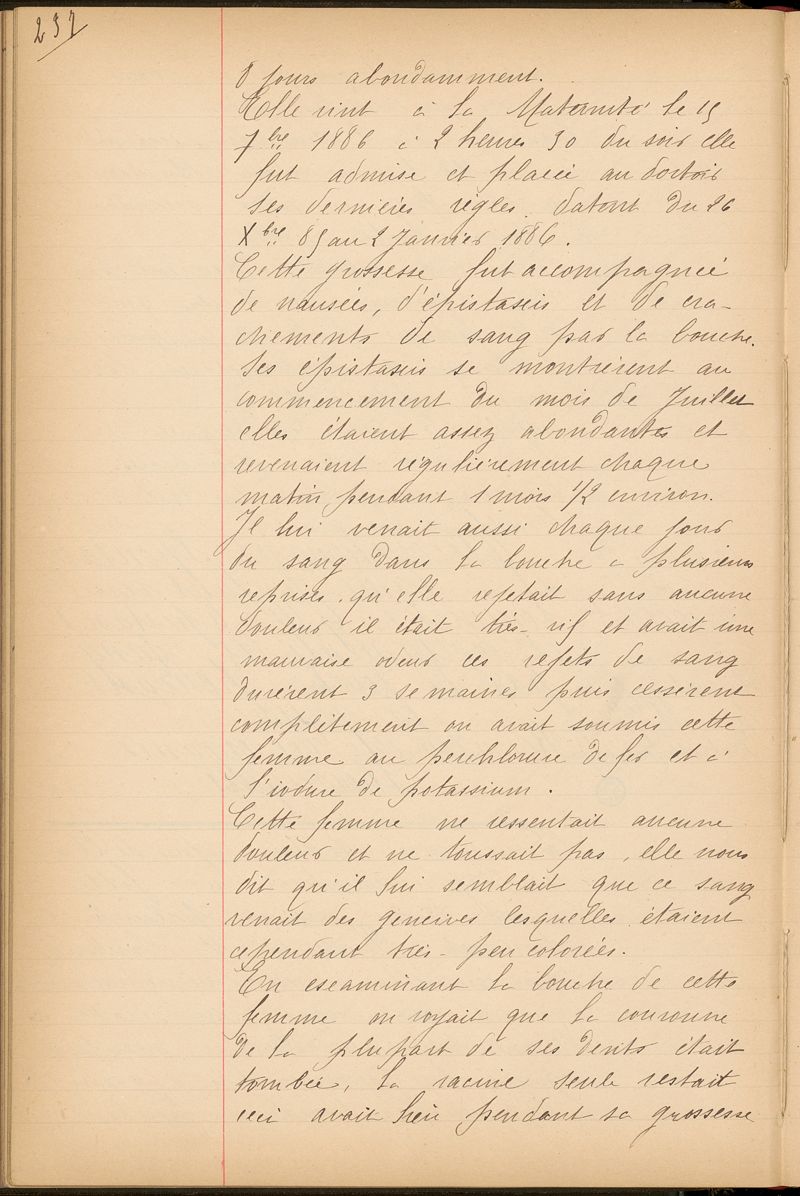 237
8 jours abondamment.
Elle vint à la Maternité le 15
7bre 1886 à 2 heures 30 du soir elle
fut admise et placée au dortoir
ses dernières règles datent du 26
Xbre 85 au 2 Janvier 1886.
Cette grossesse fut accompagnée
de nausées, d'épistaxis et de cra-
chements de sang par la bouche.
Ses épistaxis se montrèrent au
commencement du mois de Juillet
elles étaient assez abondantes et
revenaient régulièrement chaque
matin pendant 1 mois 1/2 environ.
Il lui venait aussi chaque jour
du sang dans la bouche à plusieurs
reprises qu'elle rejetait sans aucune
douleur il était très-vif et avait une
mauvaise odeur ces rejets de sang
durèrent 3 semaines puis cessèrent
complètement on avait soumis cette
femme au perchlorure de fer et à
l'iodure de potassium.
Cette femme ne ressentait aucune
douleur et ne toussait pas, elle nous
dit qu'il lui semblait que ce sang
venait des gencives lesquelles étaient
cependant très-peu colorées.
En eseaminant la bouche de cette
femme on voyait que la couronne
de la plupart de ses dents était
tombée, la racine seule restait
ceci avait lieu pendant sa grossesse